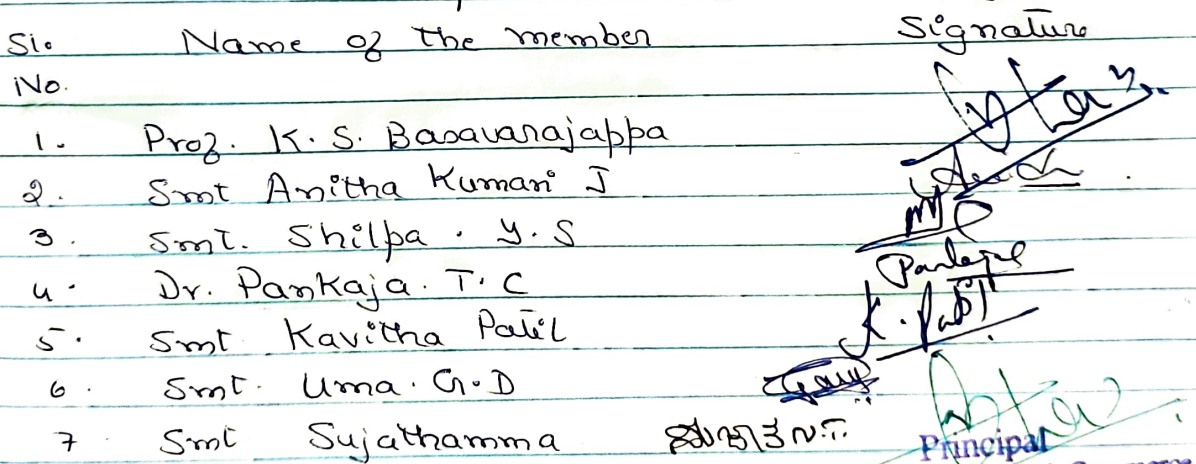 Sl. Name of the member Signature
No.
1. Prof. K. S. Basavarajappa
2. Smt Anitha Kumari J
3. Smt. Shilpa . Y. S
4. Dr. Pankaja. T. C
5. Smt Kavitha Patil K. Patil
6. Smt. Uma. G. D
7 Smt Sujathamma
Principal